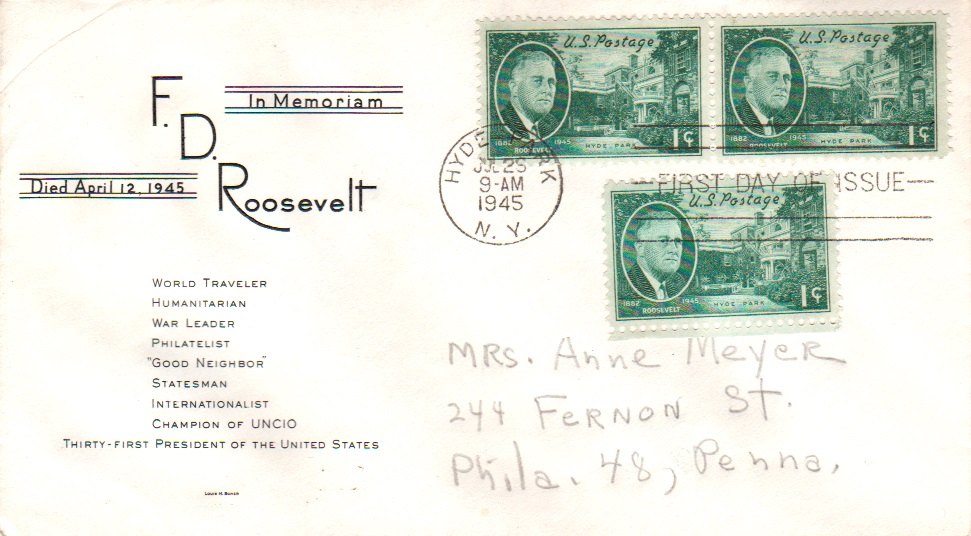 F.
D.
Roosevelt
In Memoriam
Died April 12, 1945
World Traveler
Humanitarian
War Leader
Philatelist
"Good Neighbor"
Statesman
Internationalist
Champion of UNCIO
Thirty-first President of the United States
U.S. Postage
1882 1945
ROOSEVELT
HYDE PARK
1¢
U.S. Postage
1882 1945
ROOSEVELT
HYDE PARK
1¢
HYDE PARK
9-AM
1945
N. Y.
FIRST DAY OF ISSUE
U.S. Postage
1882 1945
ROOSEVELT
HYDE PARK
1¢
MRS. Anne Meyer
244 FERNON St.
Phila. 48, Penna.